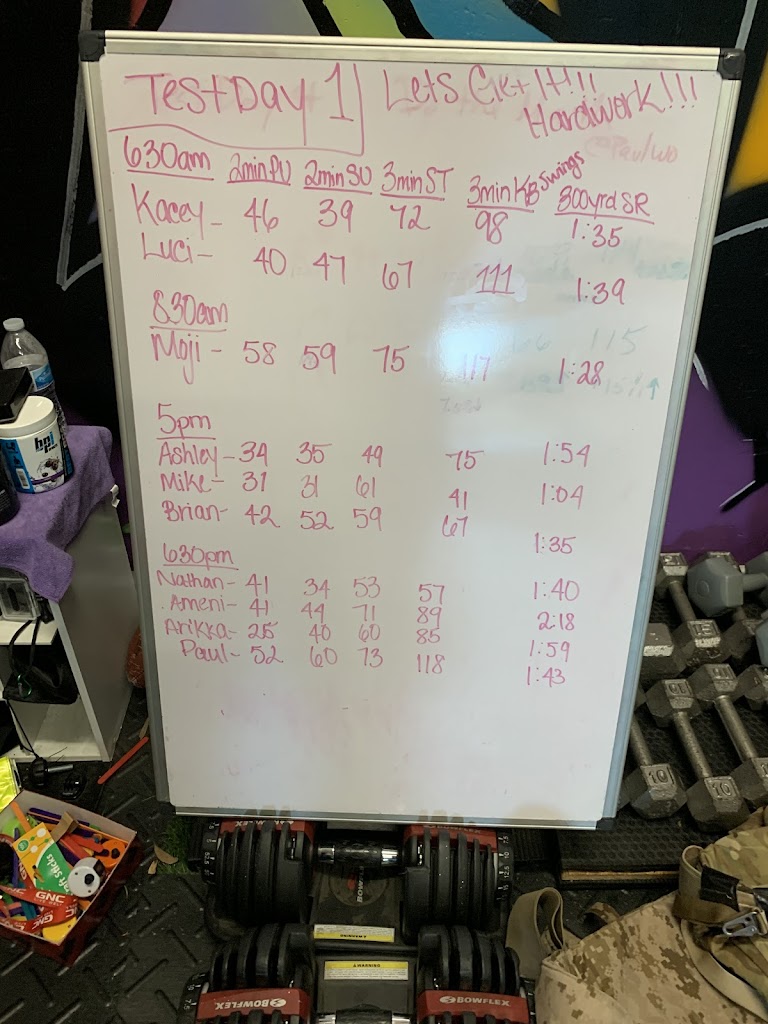 Test Day 1 Lets Get It!!!
Hardwork!!!
630am 2min PU 2min SU 3min ST 3min KB Swings 300yrd SR
Kacey - 46 39 72 98 1:35
Luci - 40 47 67 111 1:39
830am
Moji - 58 59 75 117 1:28
5pm
Ashley - 34 35 49 75 1:54
Mike - 31 31 61 41 1:04
Brian - 42 52 59 67 1:35
630pm
Nathan - 41 34 53 57 1:40
Ameni - 41 44 71 89 2:18
Arikka - 25 40 60 85 1:59
Paul - 52 60 73 118 1:43
115
bpi
GNC
GNC
BOWFLEX
WARNING
WARNING
BOWFLEX
BOWFLEX
10
10